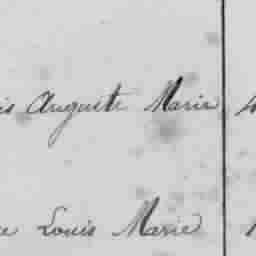 is Auguste Marie
Louis Marie